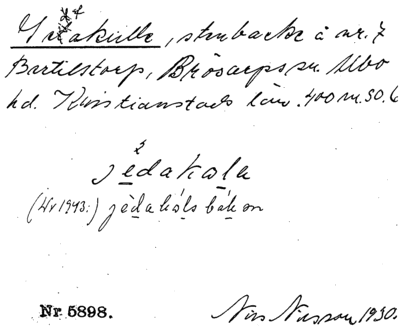 stenbacke å nr. 7
Bertilstorp, Brösarps sn. Albo
hd. Kristianstads län. 400 m. SO.
jedakola
(Nr 1943:) jèdakóls bákan
Nr. 5898. Nils Nilsson 1930.